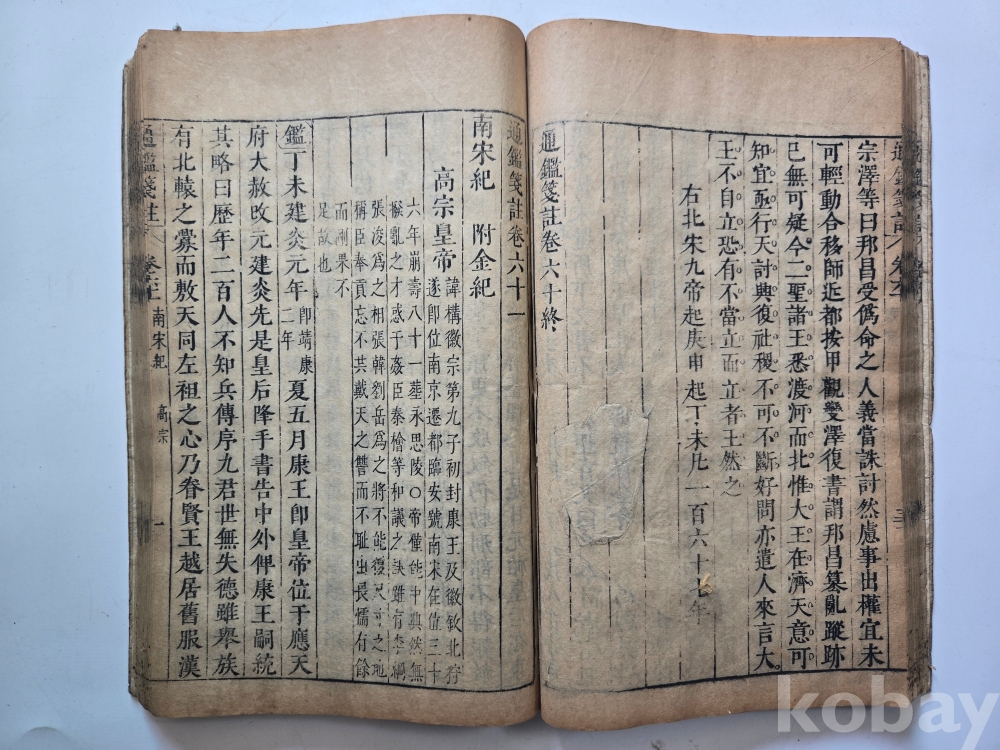 宗澤等曰邦昌受僞命之人義當誅討然慮事出權宜未
可輕動合移師近都按甲觀變澤復書謂邦昌篡亂蹤跡
已無可疑今二聖諸王悉渡河而北惟大王在濟天意可
知宜亟行天討興復社稷不可不斷好問亦遣人來言大
王不自立恐有不當立而立者王然之
右北宋九帝起庚申起丁未凡一百六十七年
通鑑箋註卷六十終
通鑑箋註卷六十一
南宋紀 附金紀
高宗皇帝
諱構徽宗第九子初封康王及徽欽北狩
遂卽位南京遷都臨安號南宋在位三十
六年崩壽八十一葬永思陵〇帝僅能中興然無
撥亂之才惑于姦臣秦檜等和議之訣雖有李綱
張浚爲之相張韓劉岳爲之將不能復尺寸之地
稱臣奉貢忘不共戴天之讐而不耻虫長懦有餘
而剛果不
足故也
鑑丁未建炎元年
卽靖康
二年
夏五月康王卽皇帝位于應天
府大赦改元建炎先是皇后降手書告中外俾康王嗣統
其略曰歷年二百人不知兵傳序九君世無失德雖舉族
有北轅之釁而敷天同左袒之心乃眷賢王越居舊服漢
通鑑箋註
南宋紀
高宗
一
kobay